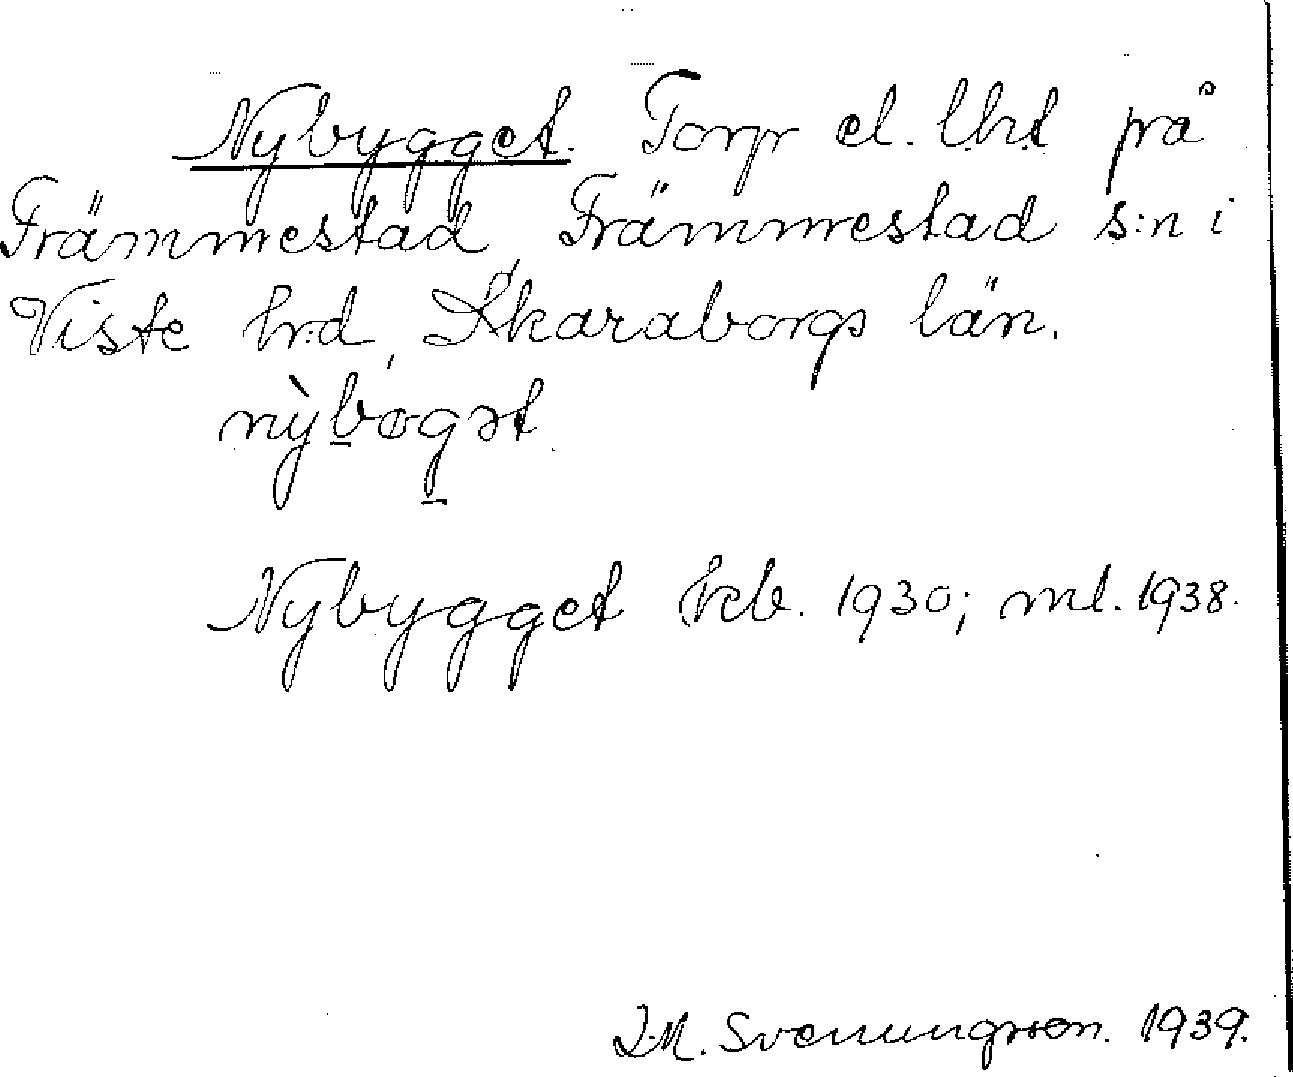 Nybygget. Torp el. lht på
Främmestad, Främmestad s:n i
Viste h:d, Skaraborgs län.
nỳb̲øg̲ət
Nybygget kb. 1930; ml. 1938.
I.M. Svenungsson. 1939.